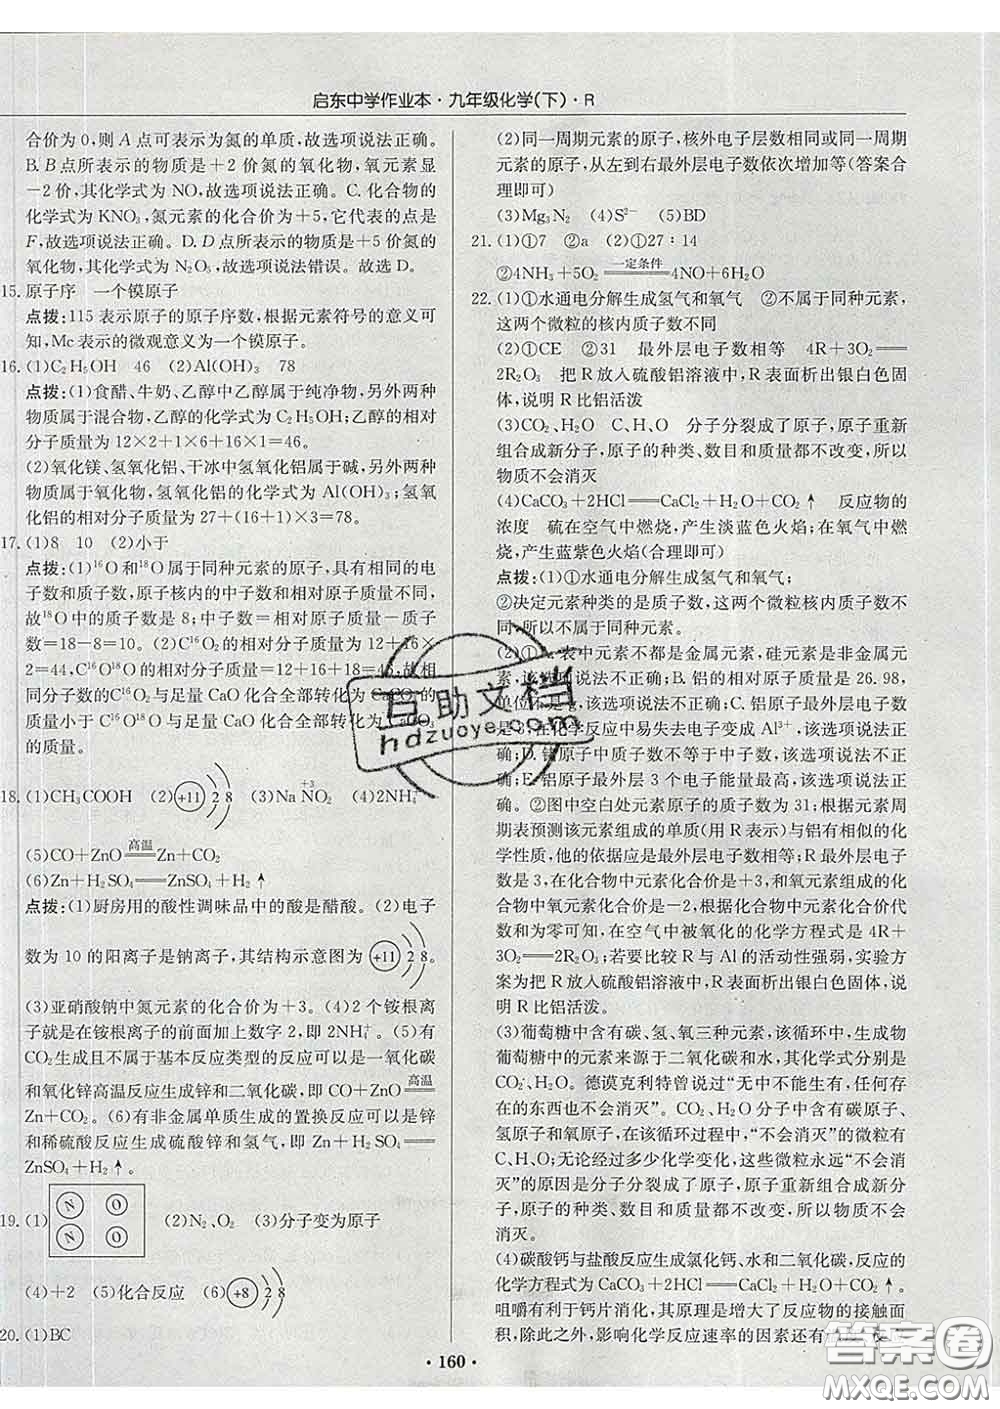 启东中学作业本·九年级化学(下)·R
合价为0,则A点可表示为氮的单质,故选项说法正确。
B.B点所表示的物质是+2价氮的氧化物,氧元素显
-2价,其化学式为NO,故选项说法正确。C.化合物的
化学式为KNO₃,氮元素的化合价为+5,它代表的点是
F,故选项说法正确。D.D点所表示的物质是+5价氮的
氧化物,其化学式为N₂O₅,故选项说法错误。故选D。
15.原子序 一个镆原子
点拨:115表示原子的原子序数,根据元素符号的意义可
知,Mc表示的微观意义为一个镆原子。
16.(1)C₂H₅OH 46 (2)Al(OH)₃ 78
点拨:(1)食醋、牛奶、乙醇中乙醇属于纯净物,另外两种
物质属于混合物,乙醇的化学式为C₂H₅OH;乙醇的相对
分子质量为12×2+1×6+16×1=46。
(2)氧化镁、氢氧化铝、干冰中氢氧化铝属于碱,另外两种
物质属于氧化物,氢氧化铝的化学式为Al(OH)₃;氢氧
化铝的相对分子质量为27+(16+1)×3=78。
17.(1)8 10 (2)小于
点拨:(1)¹⁶O和¹⁸O属于同种元素的原子,具有相同的电
子数和质子数,原子核内的中子数和相对原子质量不同,
故¹⁸O中的质子数是8;中子数=相对原子质量-质子
数=18-8=10。(2)C¹⁶O₂的相对分子质量=12+16
×2=44,C¹⁶O¹⁸O的相对分子质量=12+16+18=46,故相
同分子数的C¹⁶O₂与足量CaO化合全部转化为CaCO₃的
质量小于C¹⁶O¹⁸O与足量CaO化合全部转化为CaCO₃
的质量。
18.(1)CH₃COOH (2)+11 2 8 (3)Na +3 NO₂ (4)2NH₄⁺
(5)CO+ZnO 高温 ══ Zn+CO₂
(6)Zn+H₂SO₄══ZnSO₄+H₂↑
点拨:(1)厨房用的酸性调味品中的酸是醋酸。(2)电子
数为10的阳离子是钠离子,其结构示意图为+11 2 8。
(3)亚硝酸钠中氮元素的化合价为+3。(4)2个铵根离
子就是在铵根离子的前面加上数字2,即2NH₄⁺。(5)有
CO₂生成且不属于基本反应类型的反应可以是一氧化碳
和氧化锌高温反应生成锌和二氧化碳,即CO+ZnO 高温 ══
Zn+CO₂。(6)有非金属单质生成的置换反应可以是锌
和稀硫酸反应生成硫酸锌和氢气,即Zn+H₂SO₄══
ZnSO₄+H₂↑。
19.(1) N O N O (2)N₂、O₂ (3)分子变为原子
(4)+2 (5)化合反应 (6)+8 2 8
20.(1)BC
(2)同一周期元素的原子,核外电子层数相同或同一周期
元素的原子,从左到右最外层电子数依次增加等(答案合
理即可)
(3)Mg₃N₂ (4)S²⁻ (5)BD
21.(1)①7 ②a (2)①27:14
②4NH₃+5O₂ 一定条件 ══ 4NO+6H₂O
22.(1)①水通电分解生成氢气和氧气 ②不属于同种元素,
这两个微粒的核内质子数不同
(2)①CE ②31 最外层电子数相等 4R+3O₂══
2R₂O₃ 把R放入硫酸铝溶液中,R表面析出银白色固
体,说明R比铝活泼
(3)CO₂、H₂O C、H、O 分子分裂成了原子,原子重新
组合成新分子,原子的种类、数目和质量都不改变,所以
物质不会消灭
(4)CaCO₃+2HCl══CaCl₂+H₂O+CO₂↑ 反应物的
浓度 硫在空气中燃烧,产生淡蓝色火焰;在氧气中燃
烧,产生蓝紫色火焰(合理即可)
点拨:(1)①水通电分解生成氢气和氧气;
②决定元素种类的是质子数,这两个微粒核内质子数不
同,所以不属于同种元素。
(2)①A.表中元素不都是金属元素,硅元素是非金属元
素,该选项说法不正确;B.铝的相对原子质量是26.98,
单位不是g,该选项说法不正确;C.铝原子的最外层电子数
是3,在化学反应中易失去电子变成Al³⁺,该选项说法正
确;D.镁原子中质子数不等于中子数,该选项说法不正
确;E.铝原子最外层3个电子能量最高,该选项说法正
确。②图中空白处元素原子的质子数为31;根据元素周
期表预测该元素组成的单质(用R表示)与铝有相似的化
学性质,他的依据应是最外层电子数相等;R最外层电子
数是3,在化合物中元素化合价是+3,和氧元素组成的化
合物中氧元素化合价是-2,根据化合物中元素化合价代
数和为零可知,在空气中被氧化的化学方程式为4R+
3O₂══2R₂O₃;若要比较R与Al的活动性强弱,实验方
案为把R放入硫酸铝溶液中,R表面析出银白色固体,说
明R比铝活泼。
(3)葡萄糖中含有碳、氢、氧三种元素,该循环中,生成物
葡萄糖中的元素来源于二氧化碳和水,其化学式分别是
CO₂、H₂O。德谟克利特曾说过“无中不能生有,任何存
在的东西也不会消灭”。CO₂、H₂O分子中含有碳原子、
氢原子和氧原子,在该循环过程中,“不会消灭”的微粒有
C、H、O;无论经过多少化学变化,这些微粒永远“不会消
灭”的原因是分子分裂成了原子,原子重新组合成新分
子,原子的种类、数目和质量都不改变,所以物质不会
消灭。
(4)碳酸钙与盐酸反应生成氯化钙、水和二氧化碳,反应的
化学方程式为CaCO₃+2HCl══CaCl₂+H₂O+CO₂↑。
咀嚼有利于钙片消化,其原理是增大了反应物的接触面
积,除此之外,影响化学反应速率的因素还有
·160·
互助文档
hdzuoye.com
答案圈
MXQE.COM